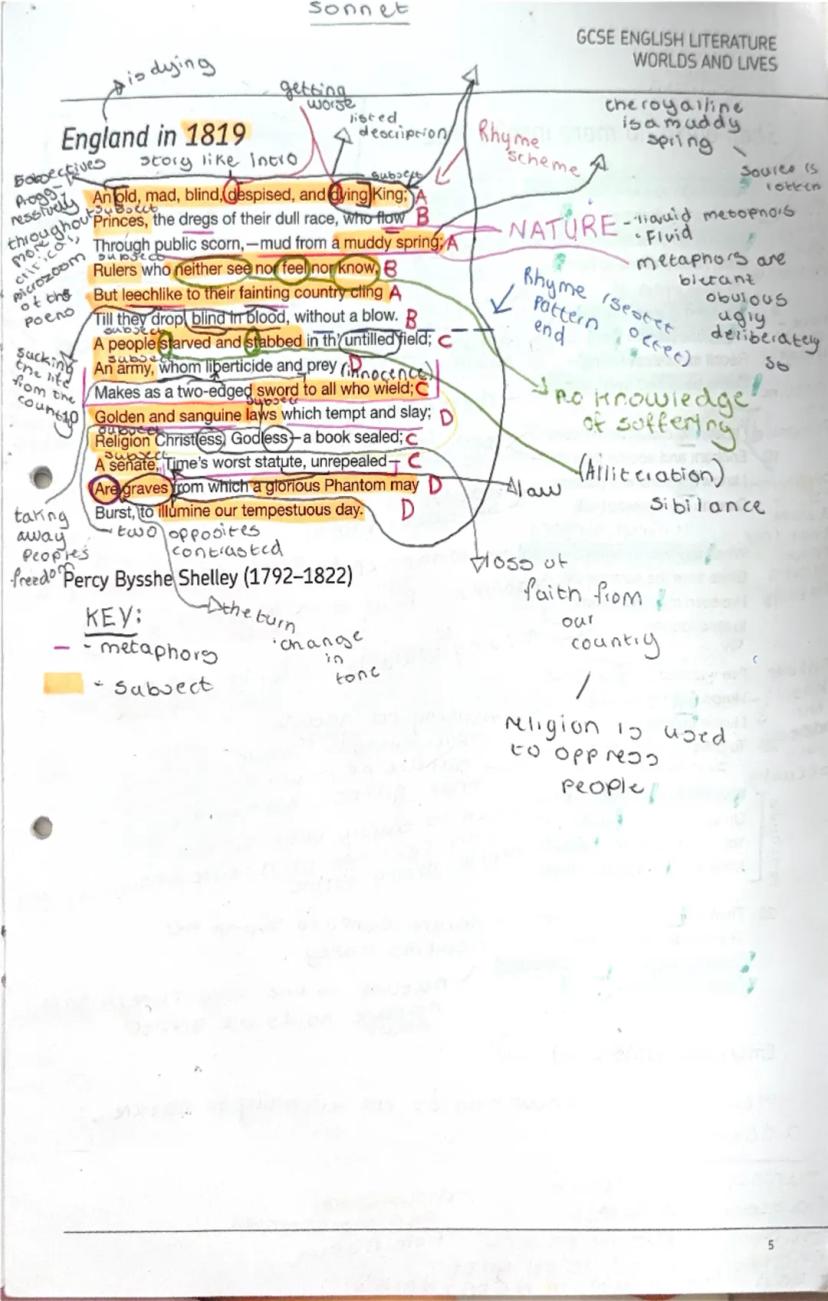 sonnet
GCSE ENGLISH LITERATURE
WORLDS AND LIVES
is dying
getting
worse
listed
description
Rhyme
scheme
the royal line
is a muddy
spring
source is
rotten
England in 1819
story like intro
subject
An old, mad, blind, despised, and dying King; A
subject
Princes, the dregs of their dull race, who flow B
Through public scorn,—mud from a muddy spring; A
subject
Rulers who neither see nor feel nor know, B
But leechlike to their fainting country cling A
Till they drop, blind in blood, without a blow. B
subject
A people starved and stabbed in th' untilled field; C
subject
An army, whom liberticide and prey D
(innocence)
Makes as a two-edged sword to all who wield; C
subject
10 Golden and sanguine laws which tempt and slay; D
subject
Religion Christless, Godless—a book sealed; C
subject
A senate, Time's worst statute, unrepealed— C
Are graves from which a glorious Phantom may D
Burst, to illumine our tempestuous day. D
Percy Bysshe Shelley (1792–1822)
throughout
more
microzoom
of the
poem
sucking
the life
from the
country
taking
away
peoples
freedom
NATURE - liquid metaphors
• Fluid
metaphors are
blutant
obuious
ugly
deliberately
so
Rhyme (sestet
pattern octet)
end
no knowledge
of suffering
(Alliteration)
sibilance
law
loss of
faith from
our
country
/
religion is used
to oppress
people
two opposites
contrasted
the turn
• change
in
tone
KEY:
- metaphors
- subject
5